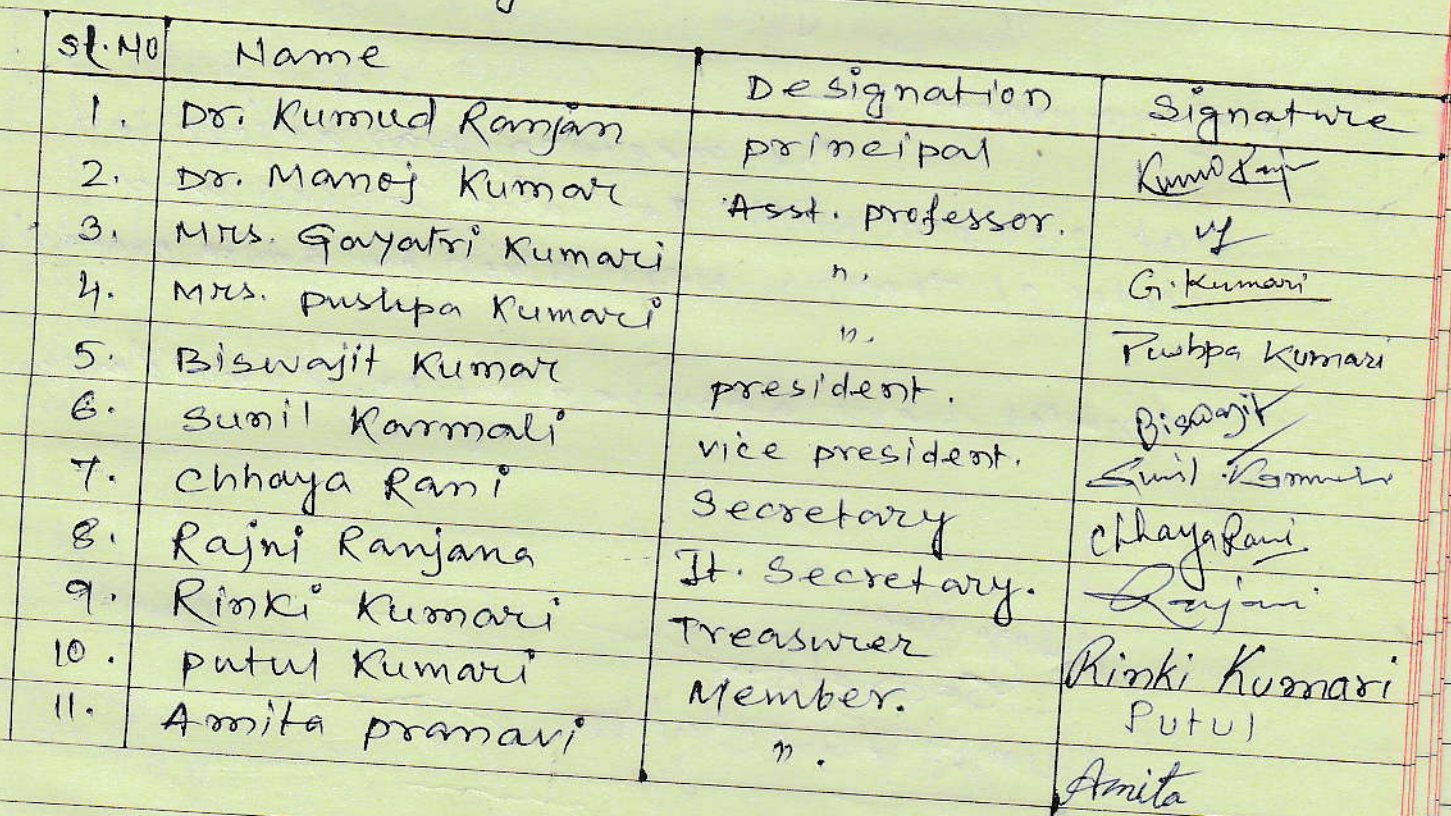 Sl.No Name Designation Signature
1. Dr. Kumud Ranjan principal
2. Dr. Manoj Kumar Asst. professor.
3. Mrs. Gayatri Kumari ". G. Kumari
4. Mrs. pushpa Kumari ". Pushpa Kumari
5. Biswajit Kumar president. Biswajit
6. Sunil Karmali vice president. Sunil Karmali
7. Chhaya Rani Secretary Chhaya Rani
8. Rajni Ranjana Jt. Secretary. Rajni
9. Rinki Kumari Treasurer Rinki Kumari
10. putul Kumari Member. Putul
11. Amita pranavi ". Amita